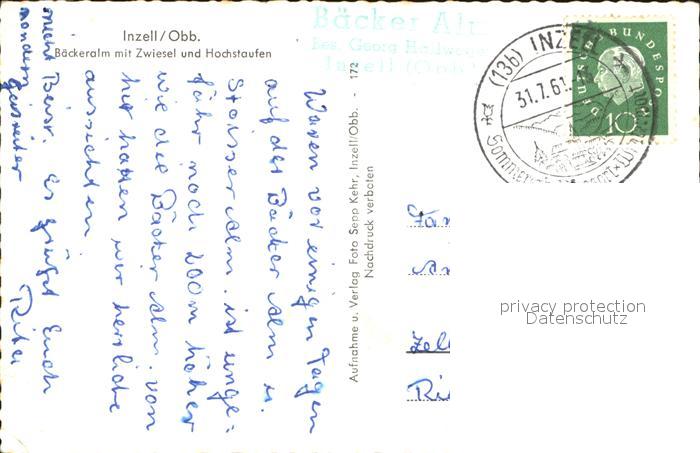 Inzell/Obb.
Bäckeralm mit Zwiesel und Hochstaufen
Bäcker Alm
Bes. Georg Hallweger
Inzell (Obb.)
(13b) INZELL
31.7.61
DEUTSCHE BUNDESPOST
10
Waren vor einigen Tagen
auf der Bäcker Alm u.
Stoisser Alm. ist unge-
fähr noch 200m höher
wie die Bäcker Alm. von
hier hatten wir herrliche
aussichten
Es grüßt Euch
Rita
172
Aufnahme u. Verlag Foto Sepp Kehr, Inzell/Obb. -
Nachdruck verboten
Fam
An
Zell
privacy protection
Datenschutz